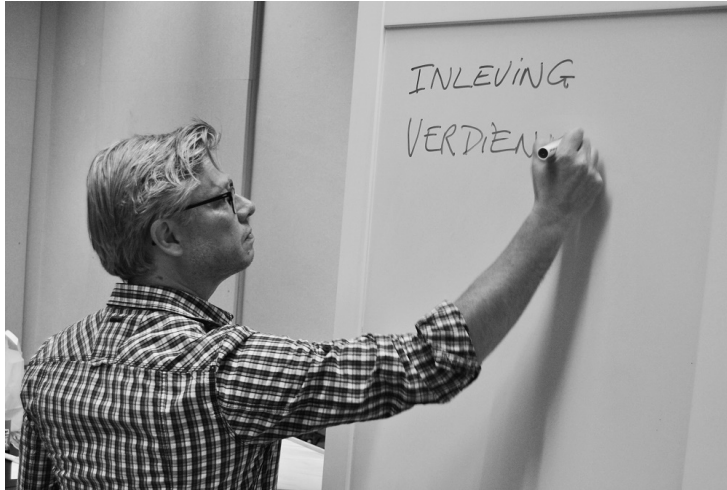 INLEVING
VERDIEN